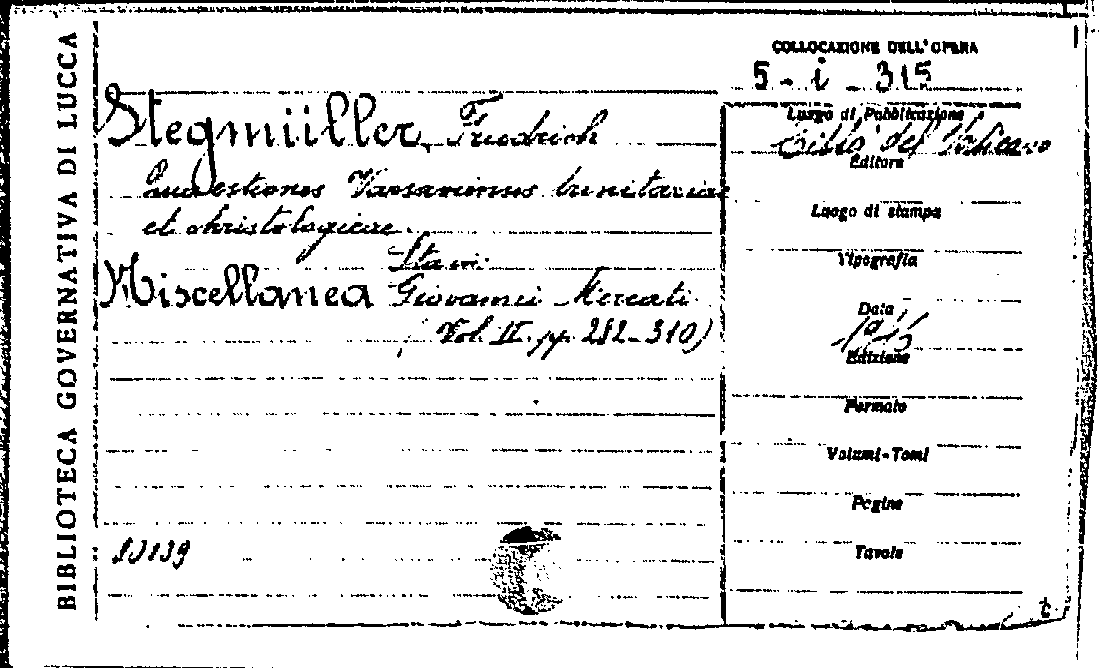 BIBLIOTECA GOVERNATIVA DI LUCCA
COLLOCAZIONE DELL'OPERA
5 - i - 315
Stegmüller, Friedrich
Quaestiones Varsavienses trinitariae
et christologicae.
Sta in:
Miscellanea Giovanni Mercati
(Vol. II. pp. 282-310)
Luogo di Pubblicazione
Città del Vaticano
Editore
Luogo di stampa
Tipografia
Data
Edizione
Formato
Volumi-Tomi
Pagine
Tavole